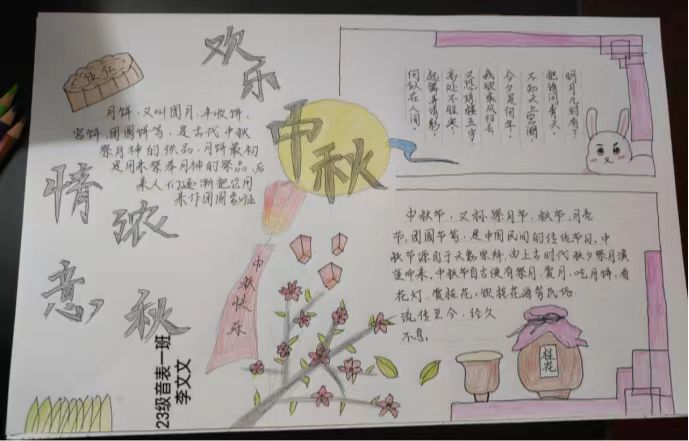 欢乐
中秋
情浓
意秋
月饼,又叫团月、丰收饼、
宫饼、团圆饼等,是古代中秋
祭月神的供品。月饼最初
是用来祭奉月神的祭品,后
来人们逐渐把它用
来作团圆象征
明月几时有?
把酒问青天。
不知天上宫阙,
今夕是何年。
我欲乘风归去
又恐琼楼玉宇,
高处不胜寒。
起舞弄清影,
何似在人间。
中秋节,又称祭月节、秋节、月亮
节、团圆节等,是中国民间的传统节日。中
秋节源自于天象崇拜,由上古时代秋夕祭月演
变而来。中秋节自古便有祭月、赏月、吃月饼、看
花灯、赏桂花、饮桂花酒等民俗,
流传至今,经久
不息。
中秋快乐
桂花
23级音表一班
李文文